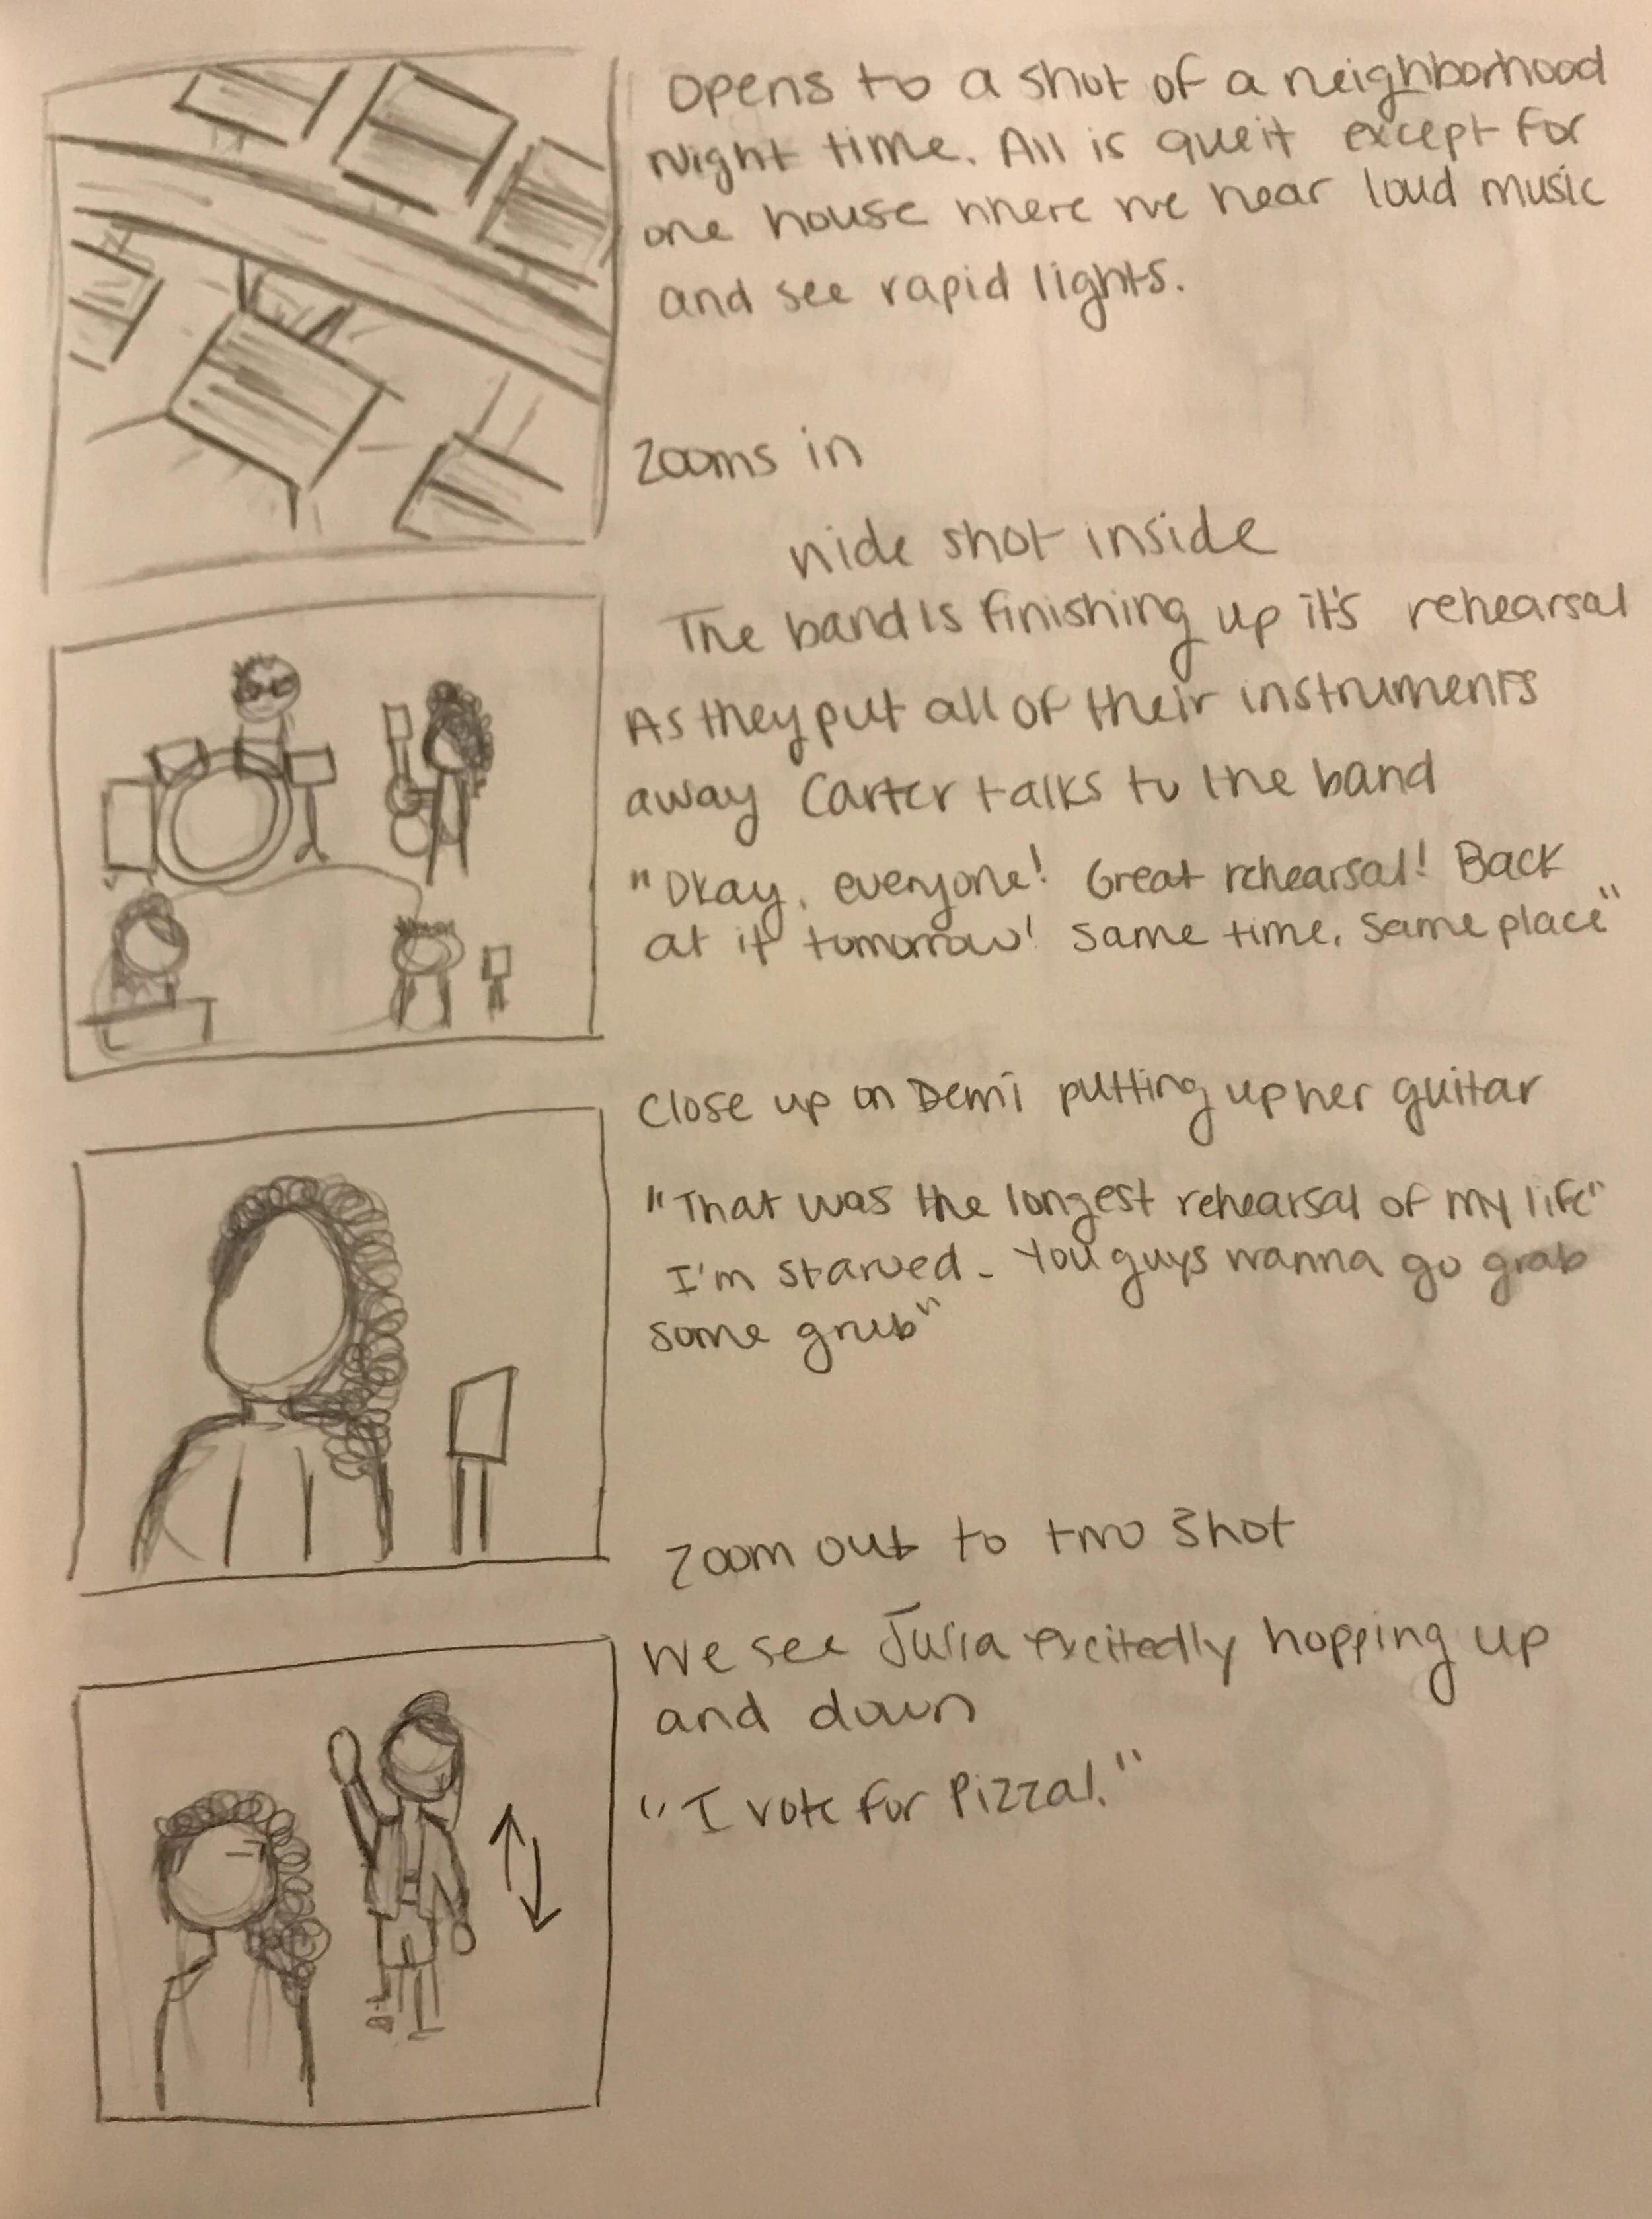 Opens to a shot of a neighborhood
Night time. All is queit except for
one house where we hear loud music
and see rapid lights.
Zooms in
wide shot inside
The band is finishing up it's rehearsal
As they put all of their instruments
away Carter talks to the band
"Okay, everyone! Great rehearsal! Back
at it tomorrow! Same time, Same place"
Close up on Demi putting up her guitar
"That was the longest rehearsal of my life"
I'm starved. You guys wanna go grab
some grub"
Zoom out to two shot
We see Julia excitedly hopping up
and down
"I vote for Pizza!."